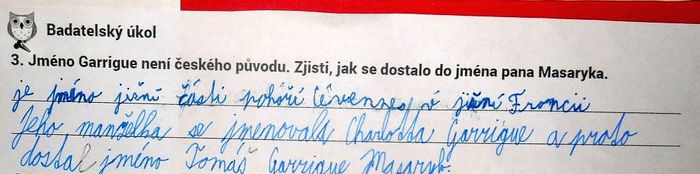 Badatelský úkol
3. Jméno Garrigue není českého původu. Zjisti, jak se dostalo do jména pana Masaryka.
je jméno jižní části pohoří Cévennes, v jižní Francii
Jeho manželka se jmenovala Charlotta Garrigue a proto
dostal jméno Tomáš Garrigue Masaryk.